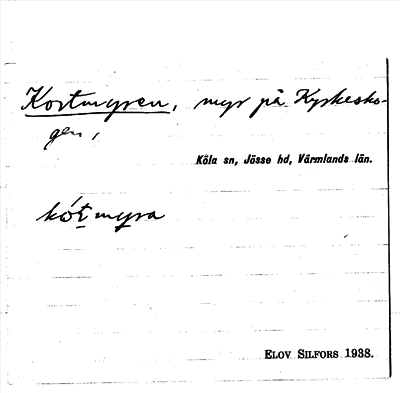 Kortmyren, myr på Kyrkesko-
gen,
Köla sn, Jösse hd, Värmlands län.
kó̱ṯmyra
ELOV SILFORS 1938.